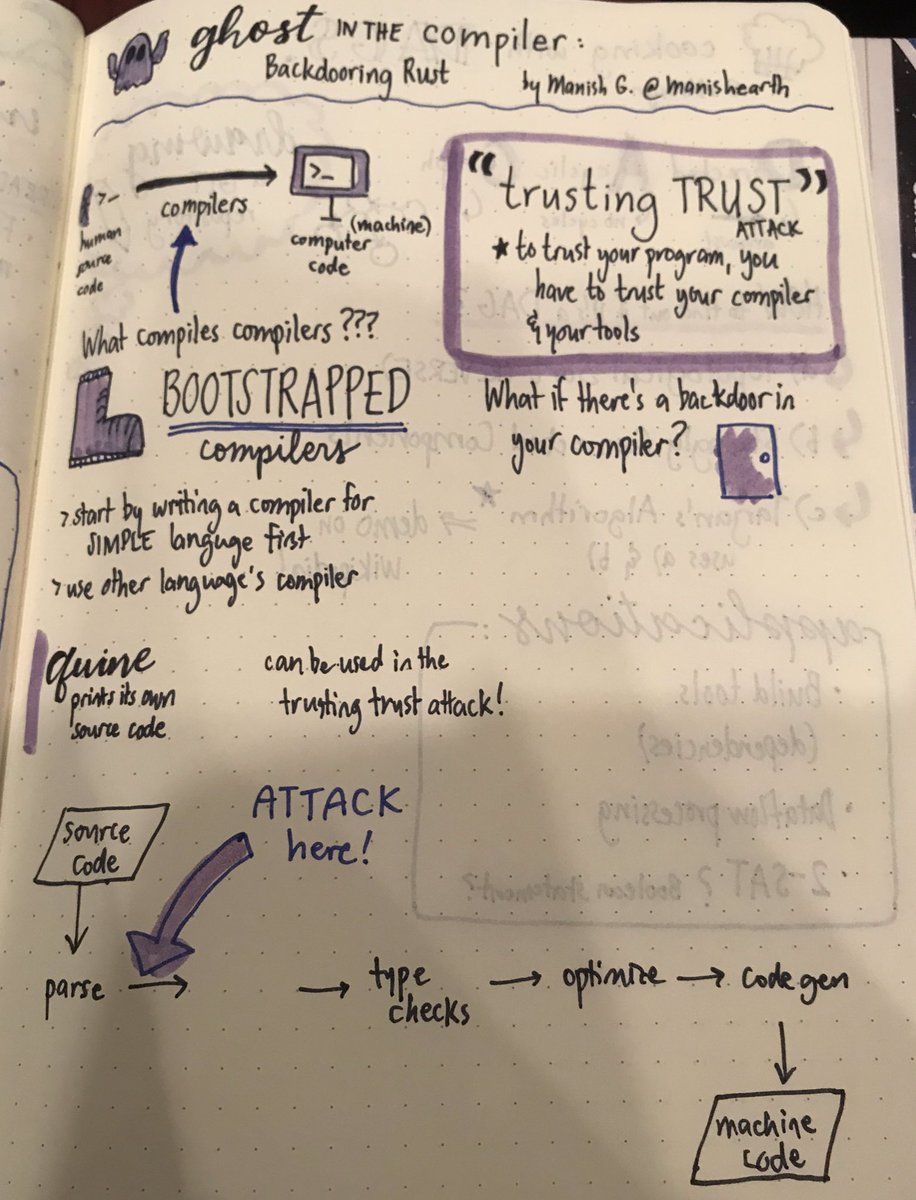 ghost IN THE compiler:
Backdooring Rust
by Manish G. @manishearth
>_
compilers
human
source
code
>_
(machine)
computer
code
What compiles compilers ???
BOOTSTRAPPED
compilers
> start by writing a compiler for
SIMPLE languge first
> use other language's compiler
"trusting TRUST"
ATTACK
★ to trust your program, you
have to trust your compiler
& your tools
What if there's a backdoor in
your compiler?
quine
prints its own
source code
can be used in the
trusting trust attack!
source
code
ATTACK
here!
parse → → type
checks
→ optimize → code gen
machine
code
cooking with
drawing
c) Tarjan's Algorithm ⇒ demo on
uses a) & b) Wikipedia
applications:
· Build tools
(dependencies)
· Dataflow processing
· 2-SAT? Boolean statement?